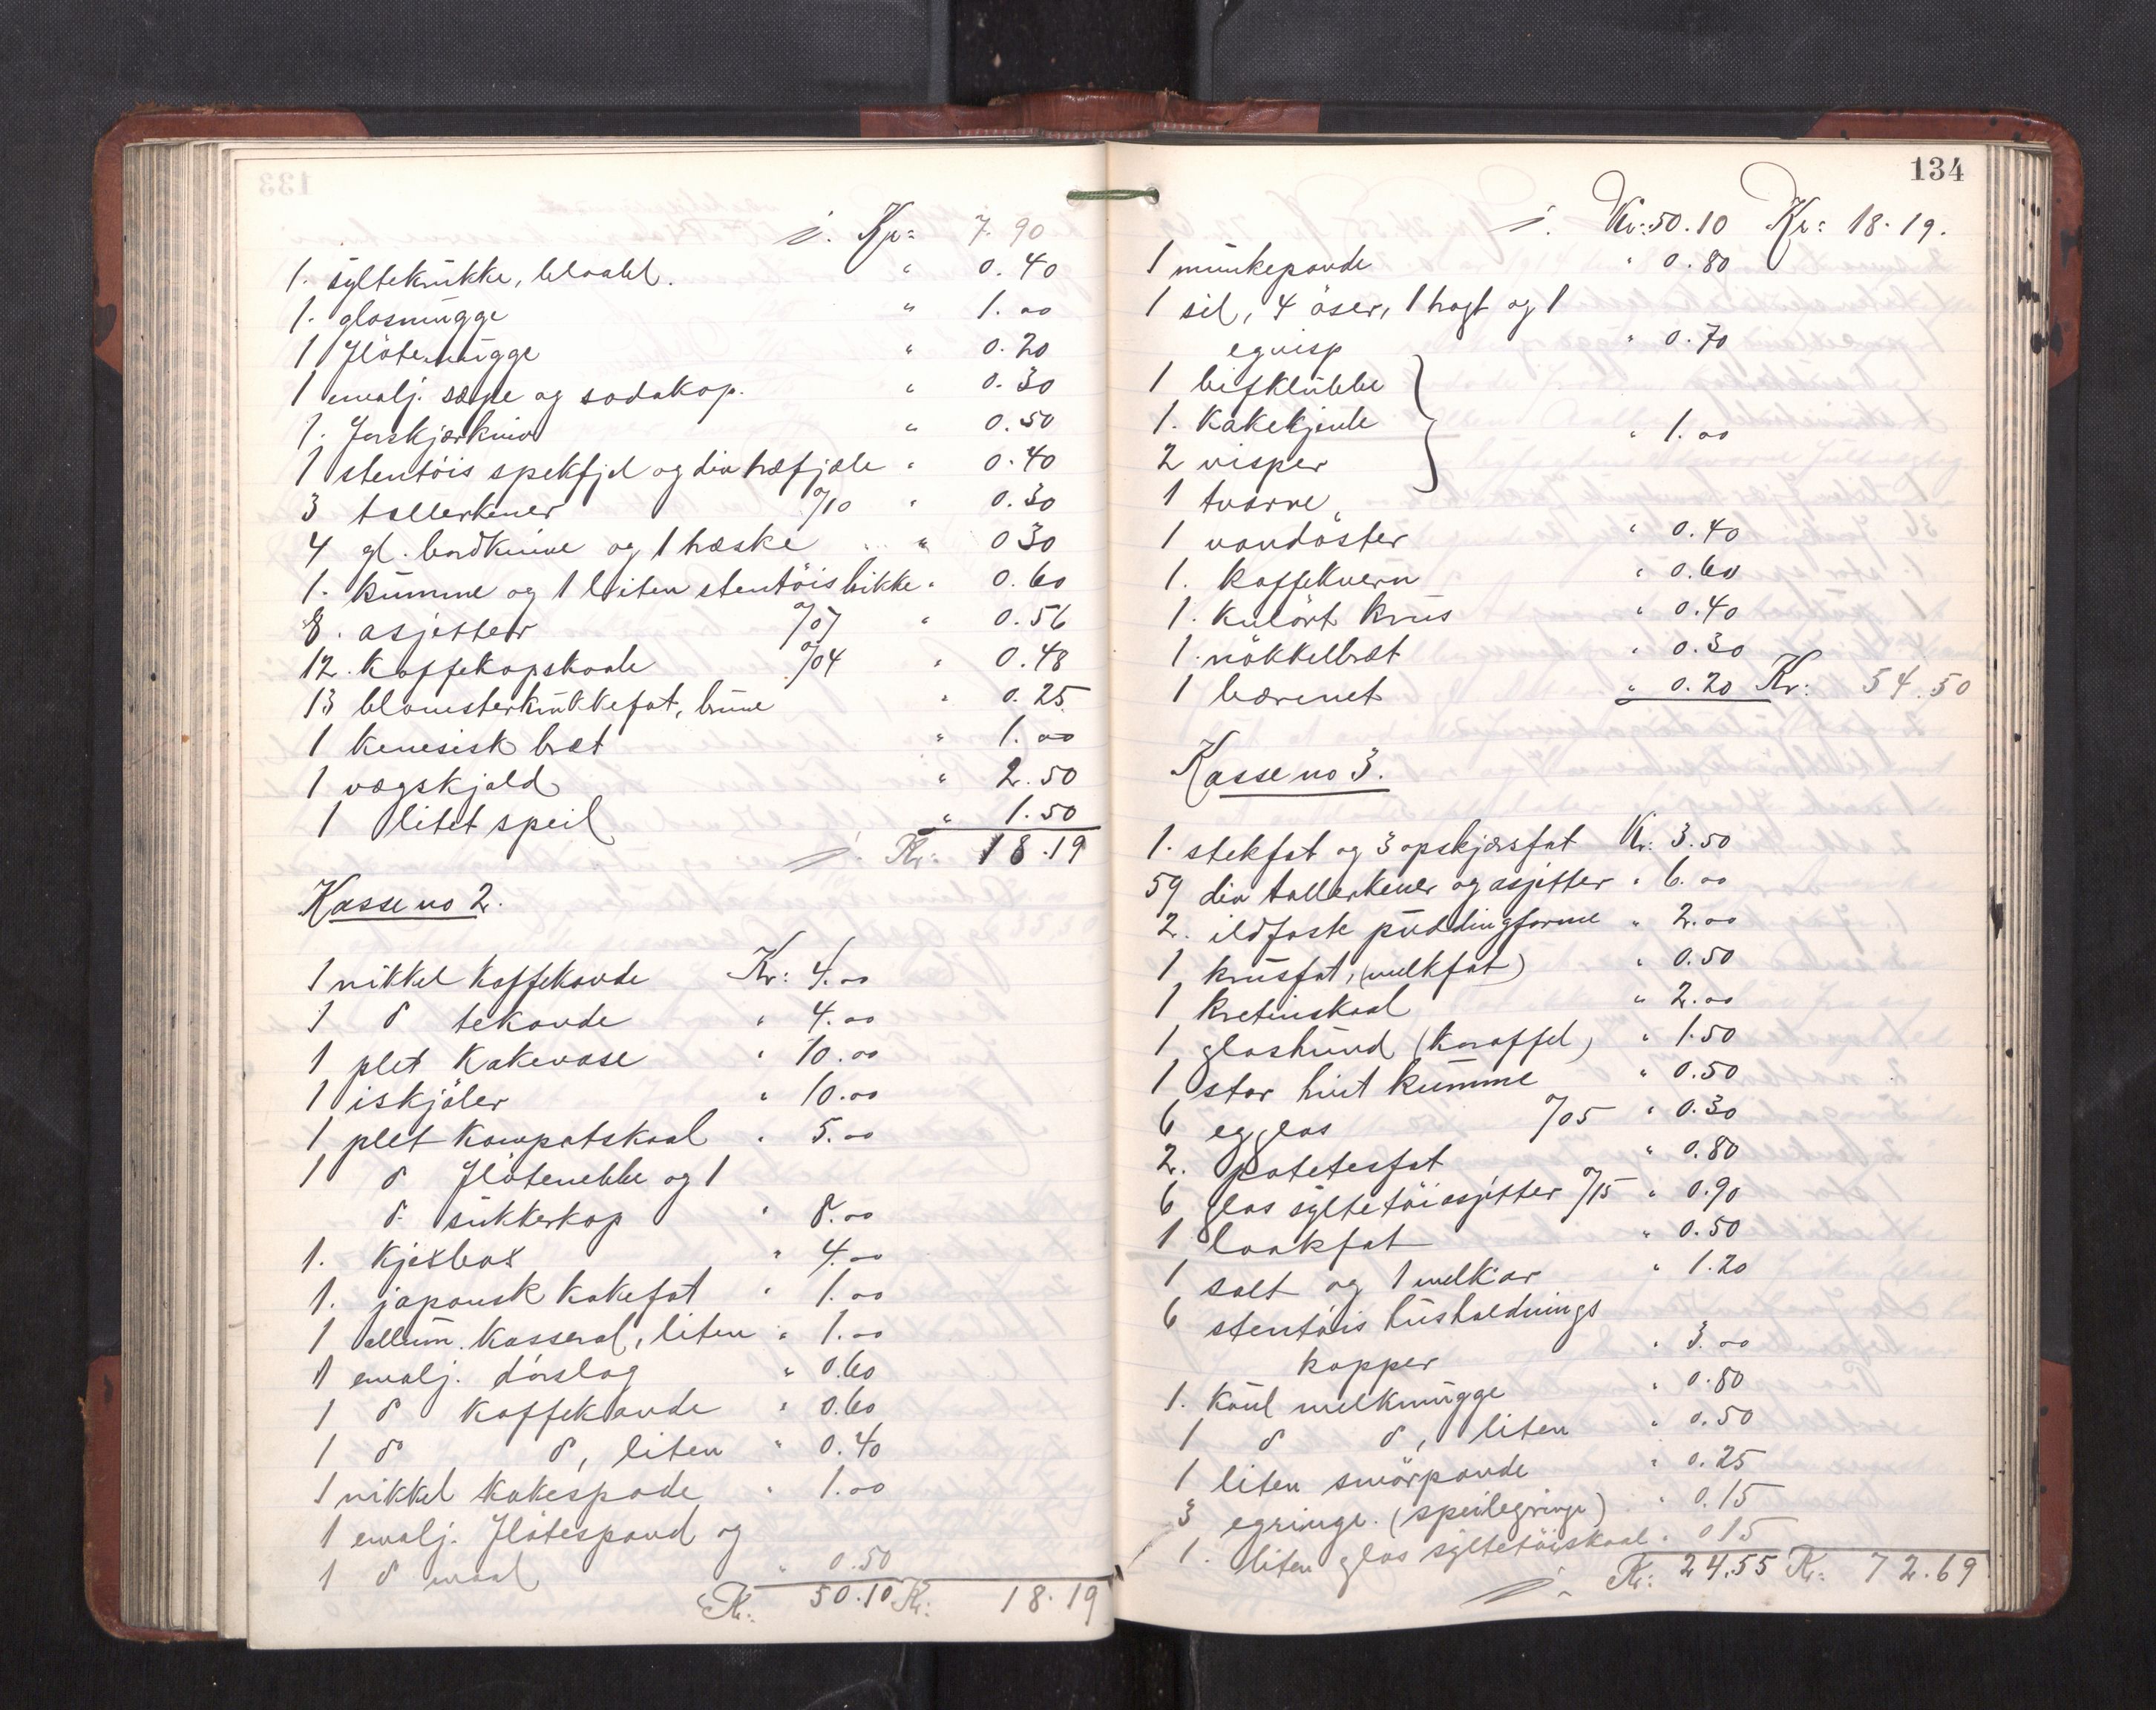 j. Kr: 7.90
1. syltekrukke, blaabl. " 0.40
1. glasmugge " 1.00
1 Fløtemugge " 0.20
1 emalj. sæpe og sodakop. " 0.30
1. Forskjærkniv " 0.50
1 stentöis spekfjel og div træfjæle " 0.40
3 tallerkener a/10 " 0.30
4 gl. bordknive og 1 træske " 0 30
1. kumme og 1 liten stentöis bikke " 0.60
8. asjetter a/07 " 0.56
12. kaffekopskaale a/04 " 0.48
13 blomsterkrukkefat, brune " 0.25
1 kenesisk bret " 1.00
1 vægskjold " 2.50
1 litet speil " 1.50
j. Kr: 18.19
Kasse no 2.
1 nikkel kaffekande Kr: 4.00
1 do tekande " 4.00
1 plet kakevase " 10.00
1 iskjöler " 10.00
1 plet kompotskaal " 5.00
1 do Flötenebbe og 1
do sukkerkop " 8.00
1. kjexbox " 4.00
1. japansk kakefat " 1.00
1 allum. kasserol, liten " 1.00
1 emalj. dörslag " 0.60
1 do kaffekande " 0.60
1 do do, liten " 0.40
1 nikkel kakespade " 1.00
1 emalj. Flötespand og
1 do maal " 0.50
Kr: 50.10 Kr: 18.19
134
j. Kr: 50.10 Kr: 18.19.
1 munkepande " 0.80
1 sil, 4 öser, 1 tragt og 1
egvisp " 0.70
1 bifklubbe
1. kakekjevle
2 visper " 1.00
1 tvarre
1 vandöster " 0.40
1. kaffekvern " 0.60
1. kulört krus " 0.40
1. nökkelbret " 0.30
1 bærenet " 0.20 Kr: 54.50
Kasse no 3.
1. stekfat og 3 opskjærsfat Kr: 3.50
59 div tallerkener og asjetter " 6.00
2. ildfaste puddingforme " 2.00
1 krusfat, (melkfat) " 0.50
1 kretinskaal " 2.00
1 glashund (karaffel) " 1.50
1 stor hvit kumme " 0.50
6 egglas a/05 " 0.30
2. potetesfat " 0.80
6 glas syltetöiasjetter a/15 " 0.90
1 laakfat " 0.50
1 salt og 1 melkar " 1.20
6 stentöis husholdnings
kopper " 3.00
1. koul melkmugge " 0.80
1 do do, liten " 0.50
1 liten smörpande " 0.25
3 egringe. (speilegringe) " 0.15
1. liten glas syltetöiskaal " 0 15
j. Kr: 24.55 Kr: 72.69